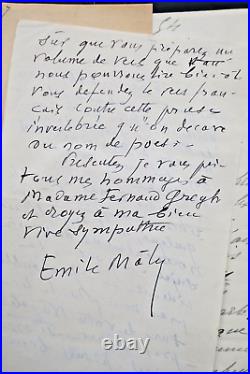 Sûs que vous préparez un
volume de vers que
nous pourrons lire bientôt
vous défendez le vers fran-
çais contre cette prose
invertébrée qu'on décore
du nom de poésie.
Présentez, je vous prie
tous mes hommages à
Madame Fernand Gregh
et croyez à ma bien
vive sympathie
Emile Mâle